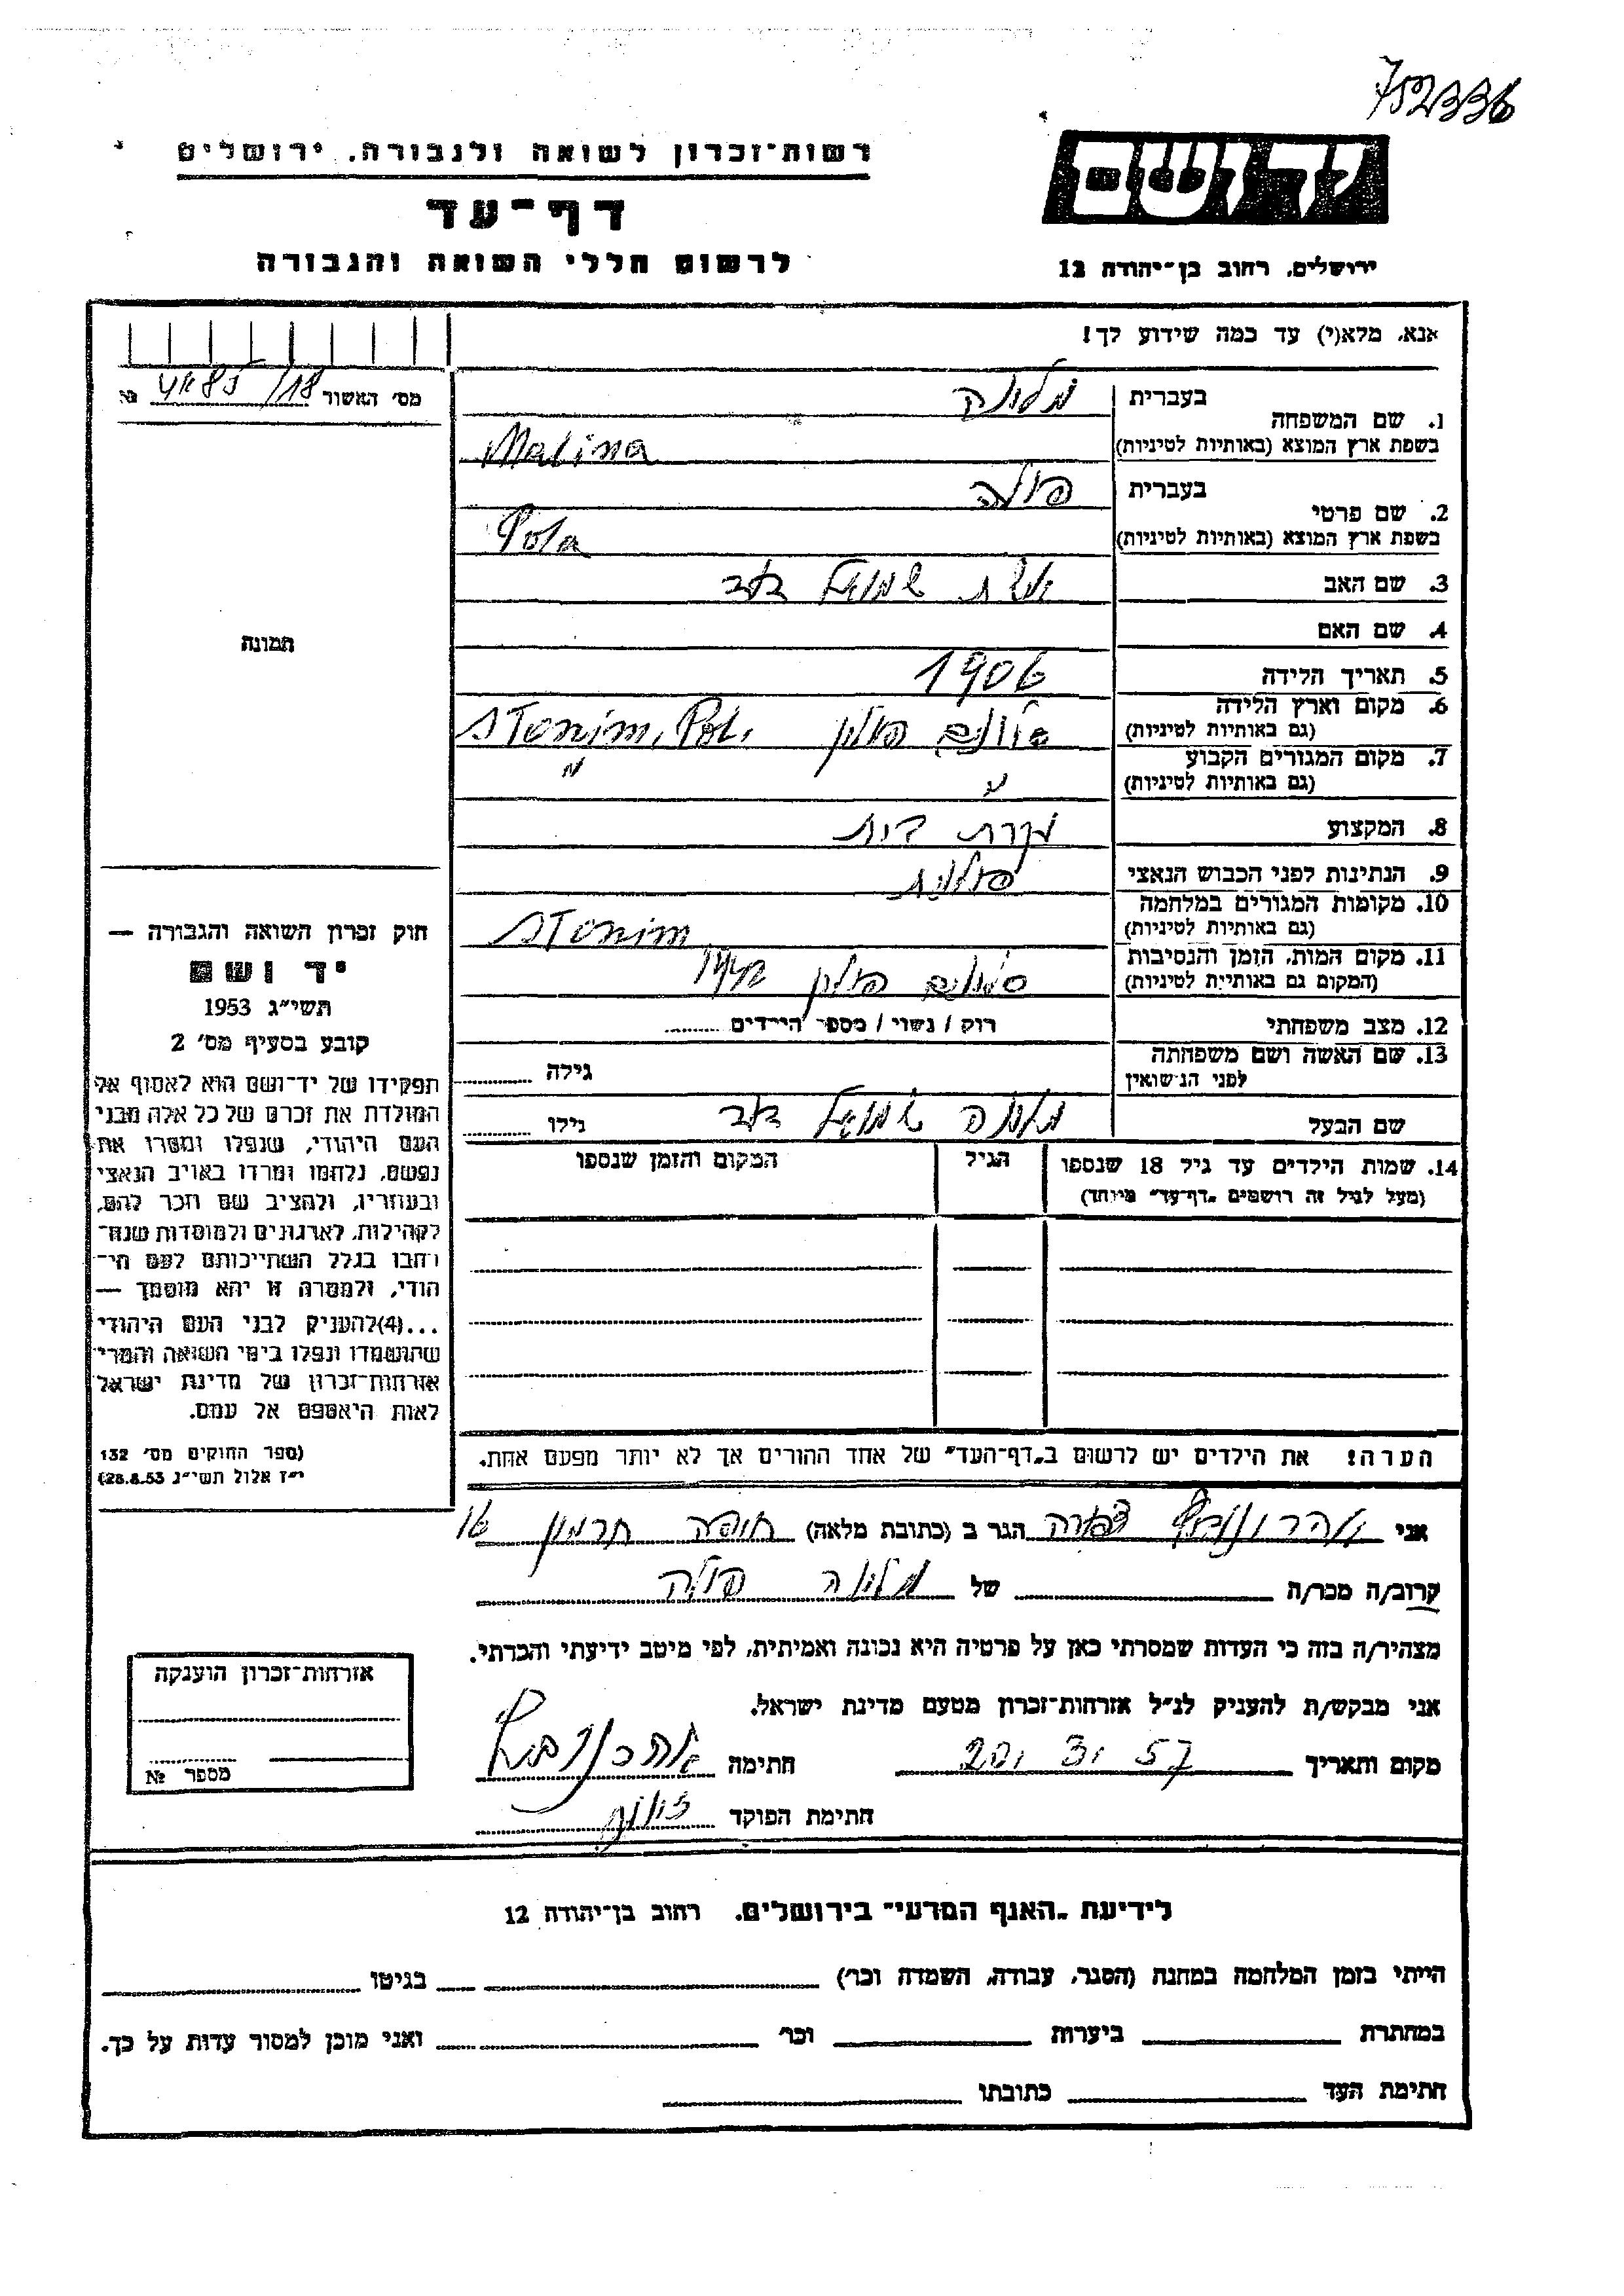 752336
יד ושם
רשות־זכרון לשואה ולגבורה. ירושלים
דף־עד
לרשום חללי השואה והגבורה
ירושלים, רחוב בן־יהודה 12
אנא, מלא(י) עד כמה שידוע לך!
מס׳ האשור 18/ №
1. שם המשפחה בעברית מלינה
בשפת ארץ המוצא (באותיות לטיניות) Malina
2. שם פרטי בעברית פולה
בשפת ארץ המוצא (באותיות לטיניות) Pola
3. שם האב אשת שמואל דב
4. שם האם
5. תאריך הלידה 1906
6. מקום וארץ הלידה סלונים פולין Slonim, Pol.
(גם באותיות לטיניות)
7. מקום המגורים הקבוע
(גם באותיות לטיניות) " "
8. המקצוע עקרת בית
9. הנתינות לפני הכבוש הנאצי פולנית
10. מקומות המגורים במלחמה
(גם באותיות לטיניות) Slonim
11. מקום המות, הזמן והנסיבות סלונים פולין 1942
(המקום גם באותיות לטיניות)
12. מצב משפחתי רוק / נשוי / מספר הילדים
13. שם האשה ושם משפחתה
לפני הנישואין גילה
שם הבעל מלינה שמואל דב גילו
14. שמות הילדים עד גיל 18 שנספו הגיל המקום והזמן שנספו
(מעל לגיל זה רושמים „דף־עד" מיוחד)
תמונה
חוק זכרון השואה והגבורה —
יד ושם
תשי״ג 1953
קובע בסעיף מס׳ 2
תפקידו של יד־ושם הוא לאסוף אל
המולדת את זכרם של כל אלה מבני
העם היהודי, שנפלו ומסרו את
נפשם, נלחמו ומרדו באויב הנאצי
ובעוזריו, ולהציב שם וזכר להם,
לקהילות, לארגונים ולמוסדות שנח־
רבו בגלל השתייכותם לעם הי־
הודי, ולמטרה זו יהא מוסמך —
...(4)להעניק לבני העם היהודי
שהושמדו ונפלו בימי השואה והמרי
אזרחות־זכרון של מדינת ישראל
לאות היאספם אל עמם.
(ספר החוקים מס׳ 132
י״ז אלול תשי״ג 28.8.53)
הערה! את הילדים יש לרשום ב„דף־העד" של אחד ההורים אך לא יותר מפעם אחת.
אני אהרונוביץ צפורה הגר ב (כתובת מלאה) חיפה חרמון 16
קרוב/ה מכר/ה של מלינה פולה
מצהיר/ה בזה כי העדות שמסרתי כאן על פרטיה היא נכונה ואמיתית, לפי מיטב ידיעתי והכרתי.
אני מבקש/ת להעניק לנ״ל אזרחות־זכרון מטעם מדינת ישראל.
מקום ותאריך 20, 3, 57 חתימה אהרונוביץ
חתימת הפוקד
אזרחות־זכרון הוענקה
מספר №
לידיעת „האגף המדעי" בירושלים. רחוב בן־יהודה 12
הייתי בזמן המלחמה במחנה (הסגר, עבודה, השמדה וכו׳) בגיטו
במחתרת ביערות וכו׳ ואני מוכן למסור עדות על כך.
חתימת העד כתובתו